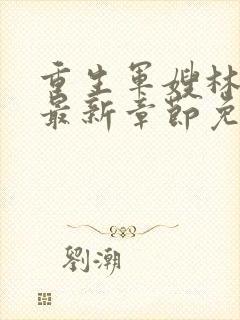 重生軍嫂林
最新章節免
劉潮